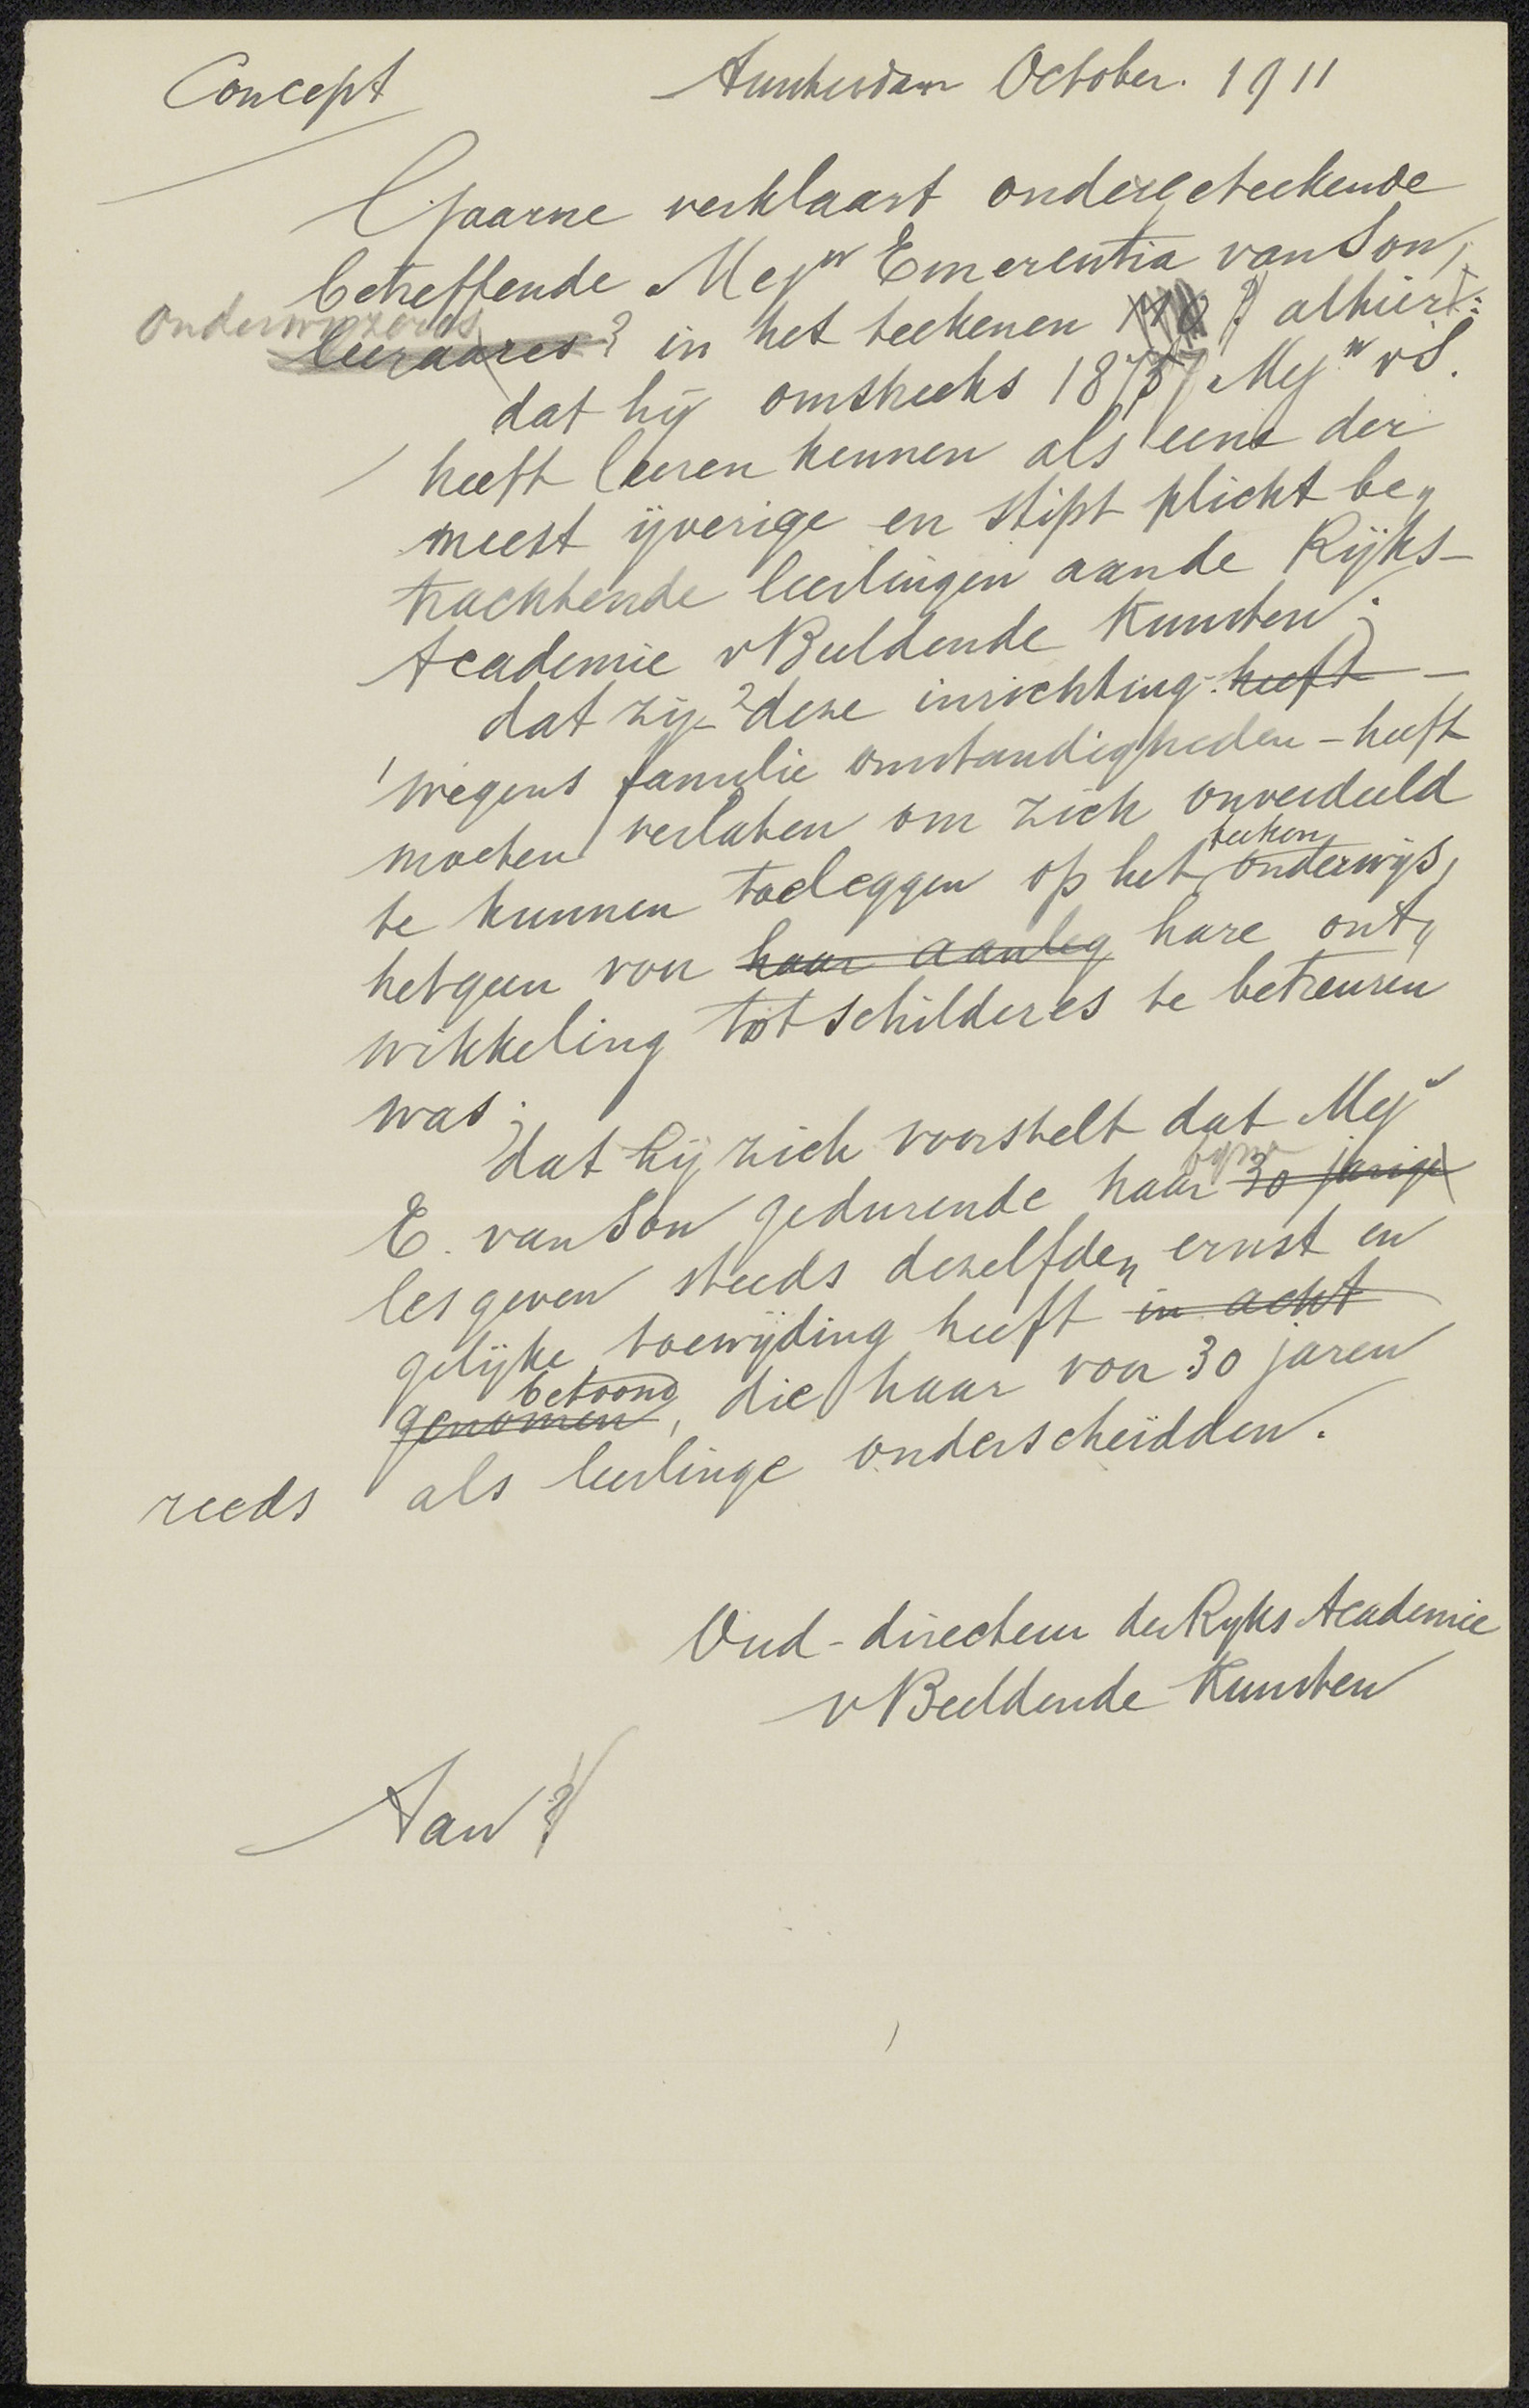 Concept
Amsterdam October. 1911
Gaarne verklaart ondergeteekende
betreffende Mejw Emerentia van Son,
onderwijzeres
leeraares? in het teekenen ? alhier:
dat hij omstreeks 187 Mejw v S.
heeft leeren kennen als eene der
meest ijverige en stipt plicht be„
trachtende leerlingen aan de Rijks-
Academie v Beeldende Kunsten;
dat zij ? deze inrichting heeft —
wegens familie omstandigheden - heeft
moeten verlaten om zich onverdeeld
teeken
te kunnen toeleggen op het onderwijs,
hetgeen voor haar aanleg hare ont„
wikkeling tot schilderes te betreuren
was;
dat hij zich voorstelt dat Mejw
E. van Son gedurende haar 30 jarige
lesgeven steeds dezelfden ernst en
gelijke toewijding heeft in acht
betoond
genomen, die haar voor 30 jaren
reeds als leerlinge onderscheidden.
Oud-directeur der Rijks Academie
v Beeldende Kunsten
Aan ?